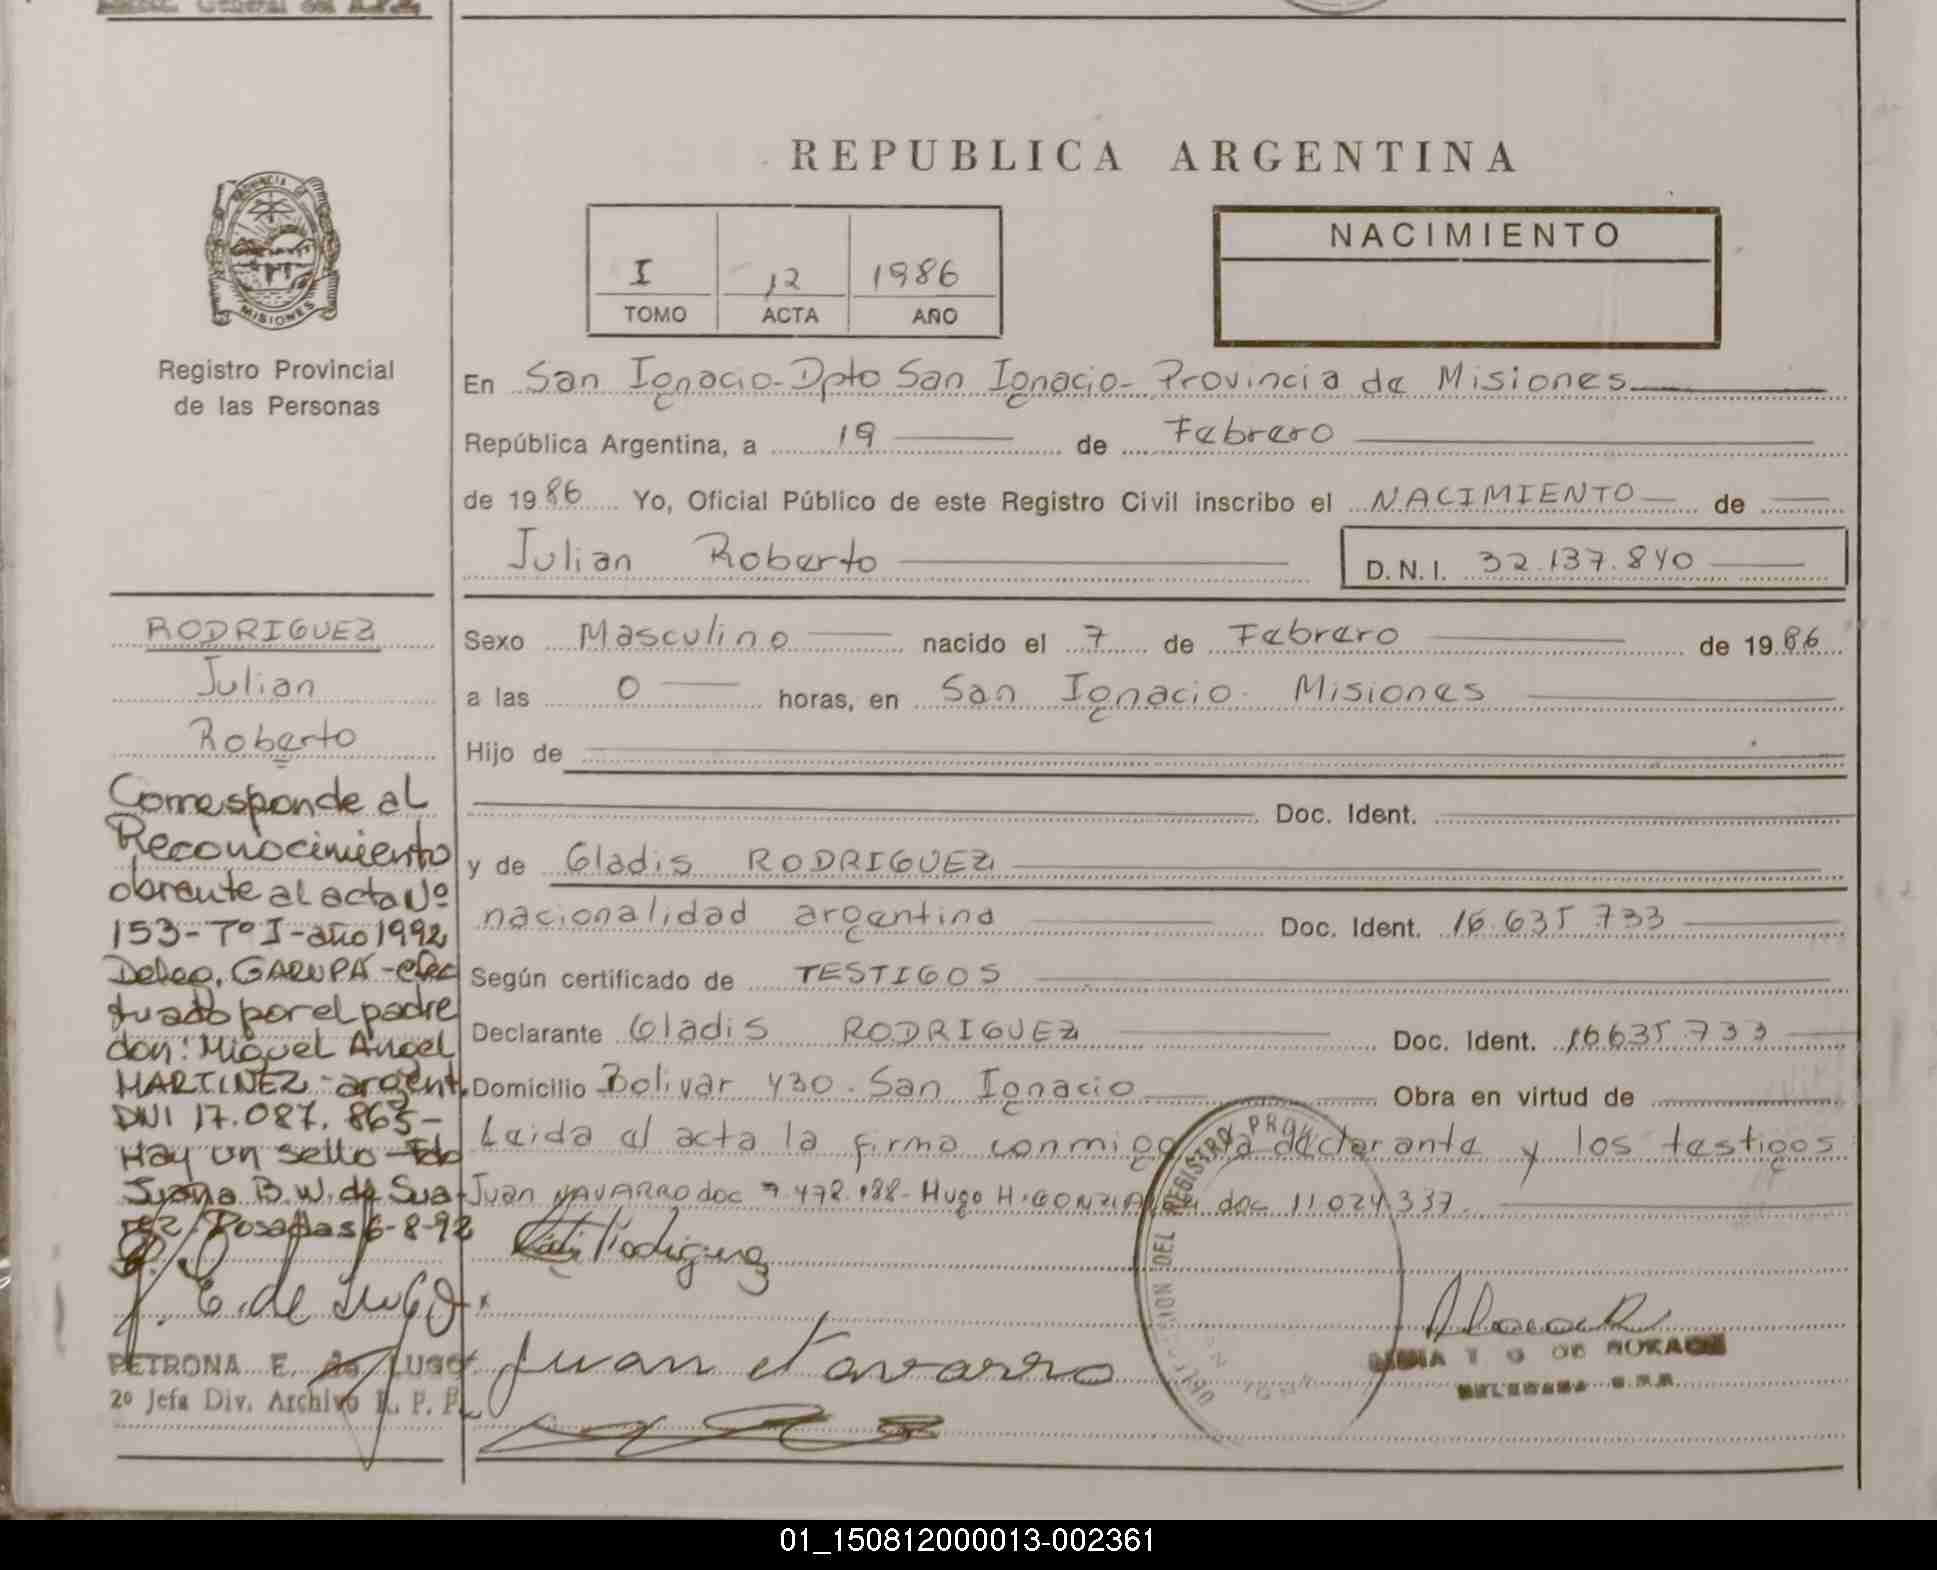 REPUBLICA ARGENTINA
PROVINCIA DE
MISIONES
Registro Provincial
de las Personas
I 12 1986
TOMO ACTA AÑO
NACIMIENTO
En San Ignacio-Dpto San Ignacio-Provincia de Misiones
República Argentina, a 19 de Febrero
de 1986 Yo, Oficial Público de este Registro Civil inscribo el NACIMIENTO de
Julian Roberto D.N.I. 32.137.840
Sexo Masculino nacido el 7 de Febrero de 1986
a las 0 horas, en San Ignacio. Misiones
Hijo de
Doc. Ident.
y de Gladis RODRIGUEZ
nacionalidad argentina Doc. Ident. 16.635.733
Según certificado de TESTIGOS
Declarante Gladis RODRIGUEZ Doc. Ident. 16635733
Domicilio Bolivar 430. San Ignacio Obra en virtud de
Leida el acta la firma conmigo la declarante y los testigos
Juan NAVARRO doc 7.472.188- Hugo H. GONZALEZ doc 11024337.
Rodriguez
Juan Navarro
RODRIGUEZ
Julian
Roberto
Corresponde al
Reconocimiento
obrante al acta Nº
153-Tº I-año 1992
Deleg. GARUPA-efec
tuado por el padre
don: Miguel Angel
MARTINEZ-argent.
DNI 17.087.863-
Hay un sello-Fdo
Juana B.W. de Sua-
rez/Posadas 6-8-92
E. de Lugo
PETRONA E. de LUGO
2º Jefa Div. Archivo R. P. P.
REGISTRO PRO
DEL
01_150812000013-002361